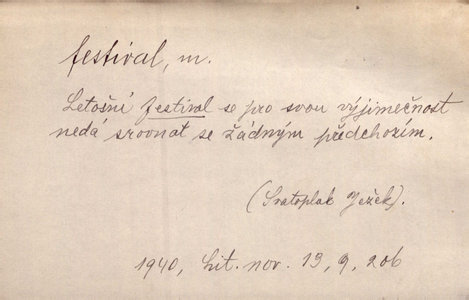 festival, m.
Letošní festival se pro svou výjimečnost
nedá srovnat se žádným předchozím.
(Svatopluk Ježek).
1940, Lit. nov. 13, 9, 206